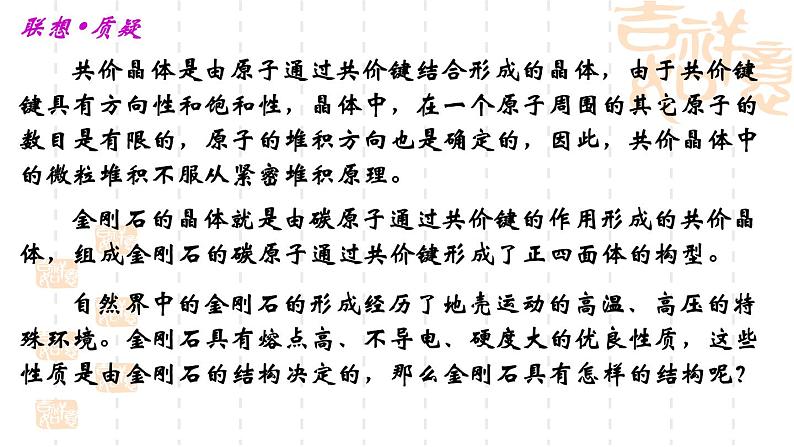 联想•质疑
共价晶体是由原子通过共价键结合形成的晶体，由于共价键
键具有方向性和饱和性，晶体中，在一个原子周围的其它原子的
数目是有限的，原子的堆积方向也是确定的，因此，共价晶体中
的微粒堆积不服从紧密堆积原理。
金刚石的晶体就是由碳原子通过共价键的作用形成的共价晶
体，组成金刚石的碳原子通过共价键形成了正四面体的构型。
自然界中的金刚石的形成经历了地壳运动的高温、高压的特
殊环境。金刚石具有熔点高、不导电、硬度大的优良性质，这些
性质是由金刚石的结构决定的，那么金刚石具有怎样的结构呢？